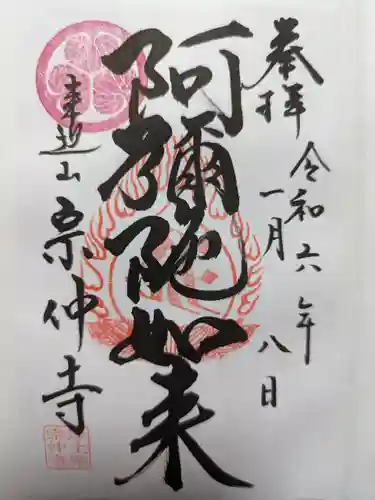 奉拝
令和六年
一月八日
阿彌陀如来
東迎山
宗仲寺